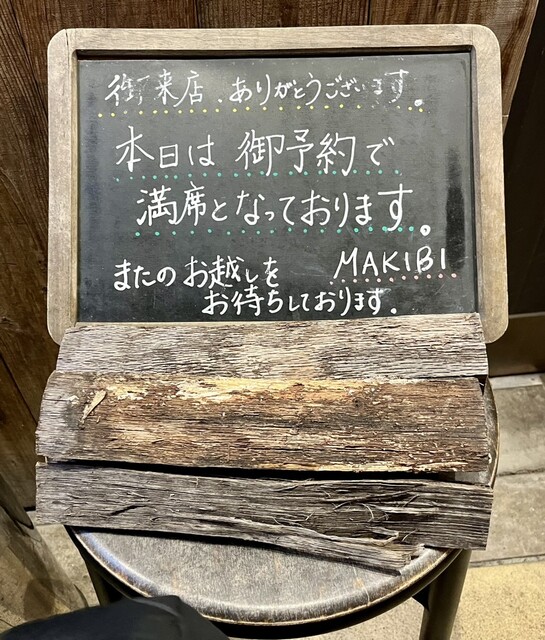 御来店、ありがとうございます。
本日は 御予約で
満席となっております。
またのお越しを
MAKIBI
お待ちしております。